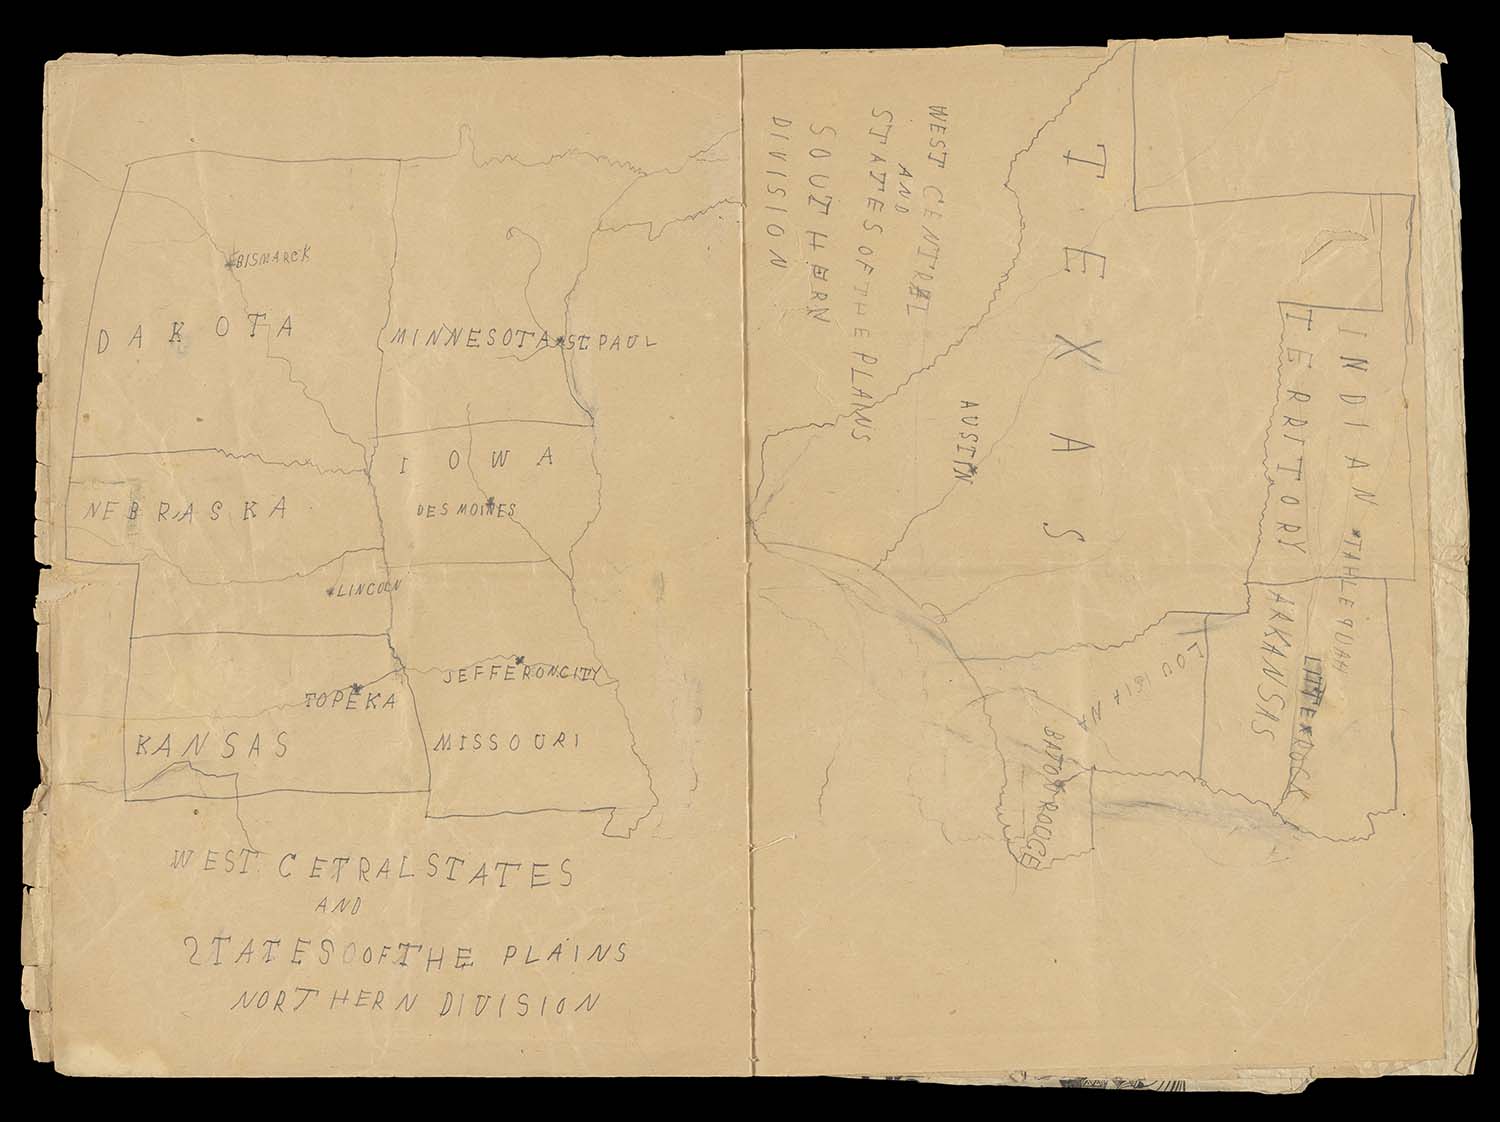 BISMARCK
DAKOTA
MINNESOTA
ST PAUL
IOWA
DES MOINES
NEBRASKA
LINCOLN
JEFFERONCITY
TOPEKA
KANSAS
MISSOURI
WEST CETRAL STATES
AND
STATES OF THE PLAINS
NORTHERN DIVISION
WEST CENTRAL
AND
STATES OF THE PLAINS
SOUTHERN
DIVISION
TEXAS
AUSTIN
INDIAN
TERRITORY
TAHLEQUAH
ARKANSAS
LITTE ROCK
LOUISIANA
BATON ROUGE